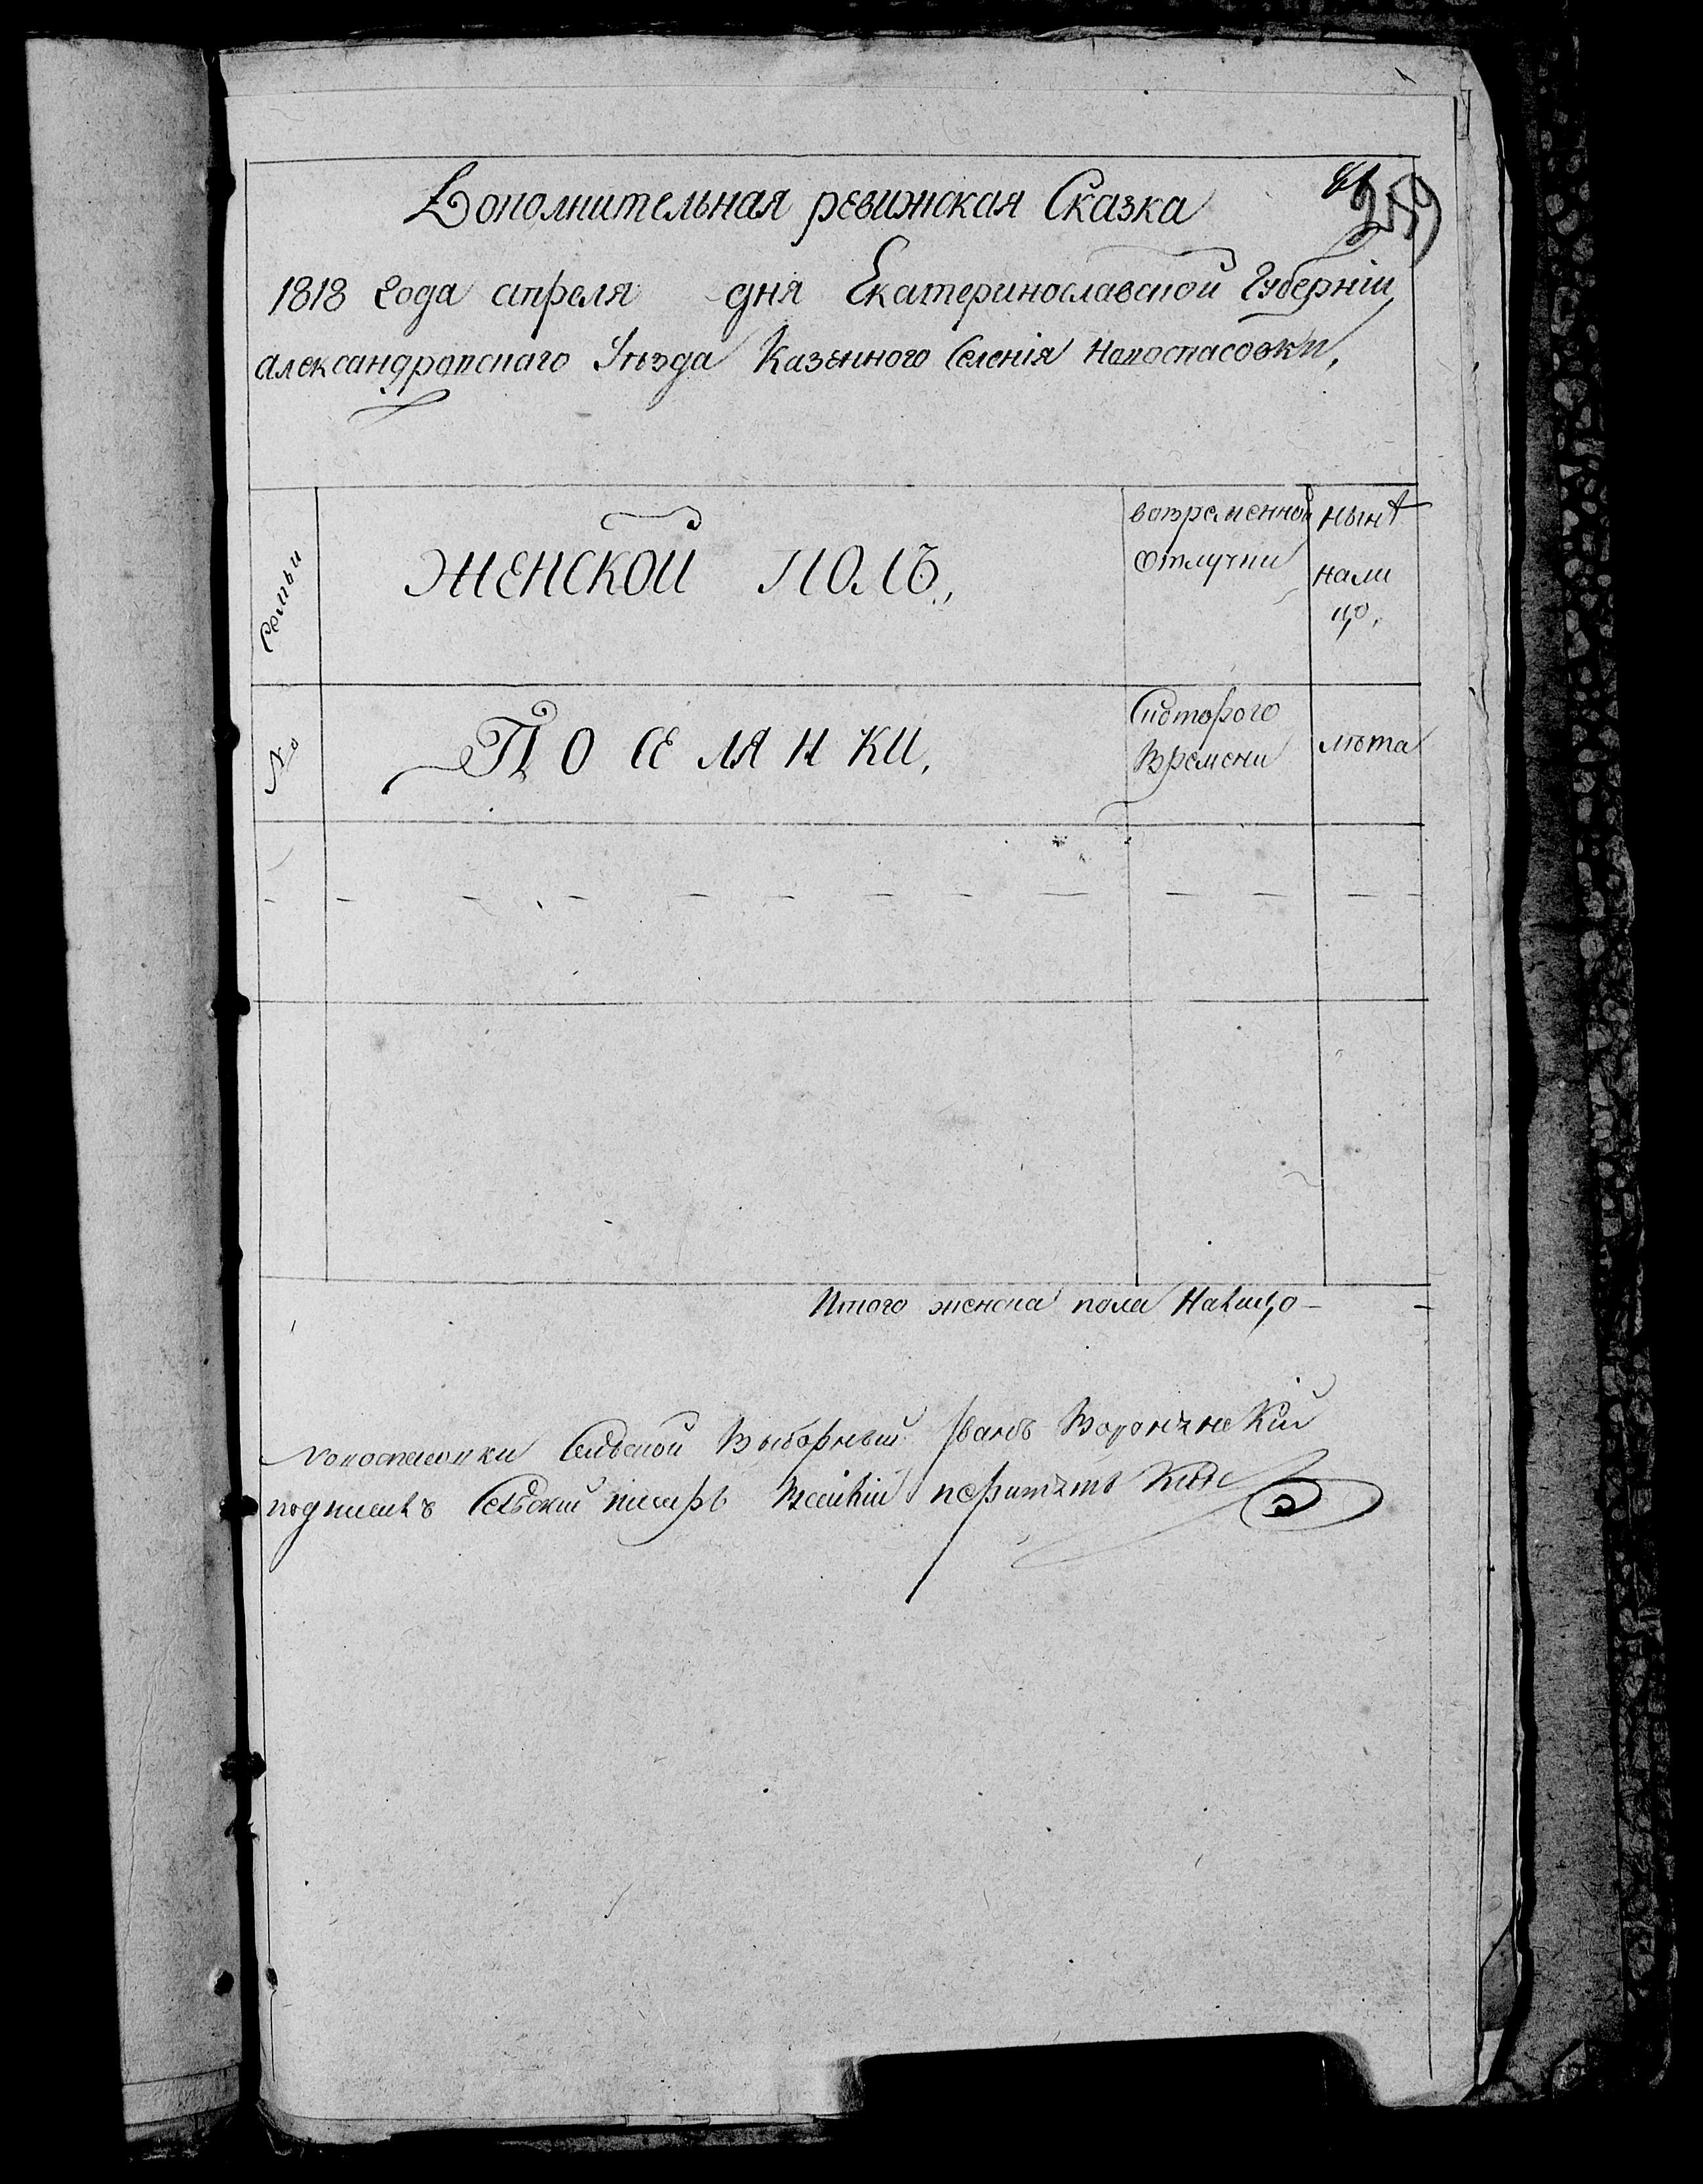 259
Дополнительная ревижская Сказка
1818 Года апреля дня Екатеринославской Губерніи
александровскаго Уѣзда Казенного Селенія Новоспасовки,
Семьи
женской полъ,
вовременной
отлучки
нынѣ
нали
цо,
№
Поселянки,
Скоторого
времени
лѣта
Итого женска пола Налицо -
новоспасовки Селской Выборный Иванъ
подписалъ Селский писарь